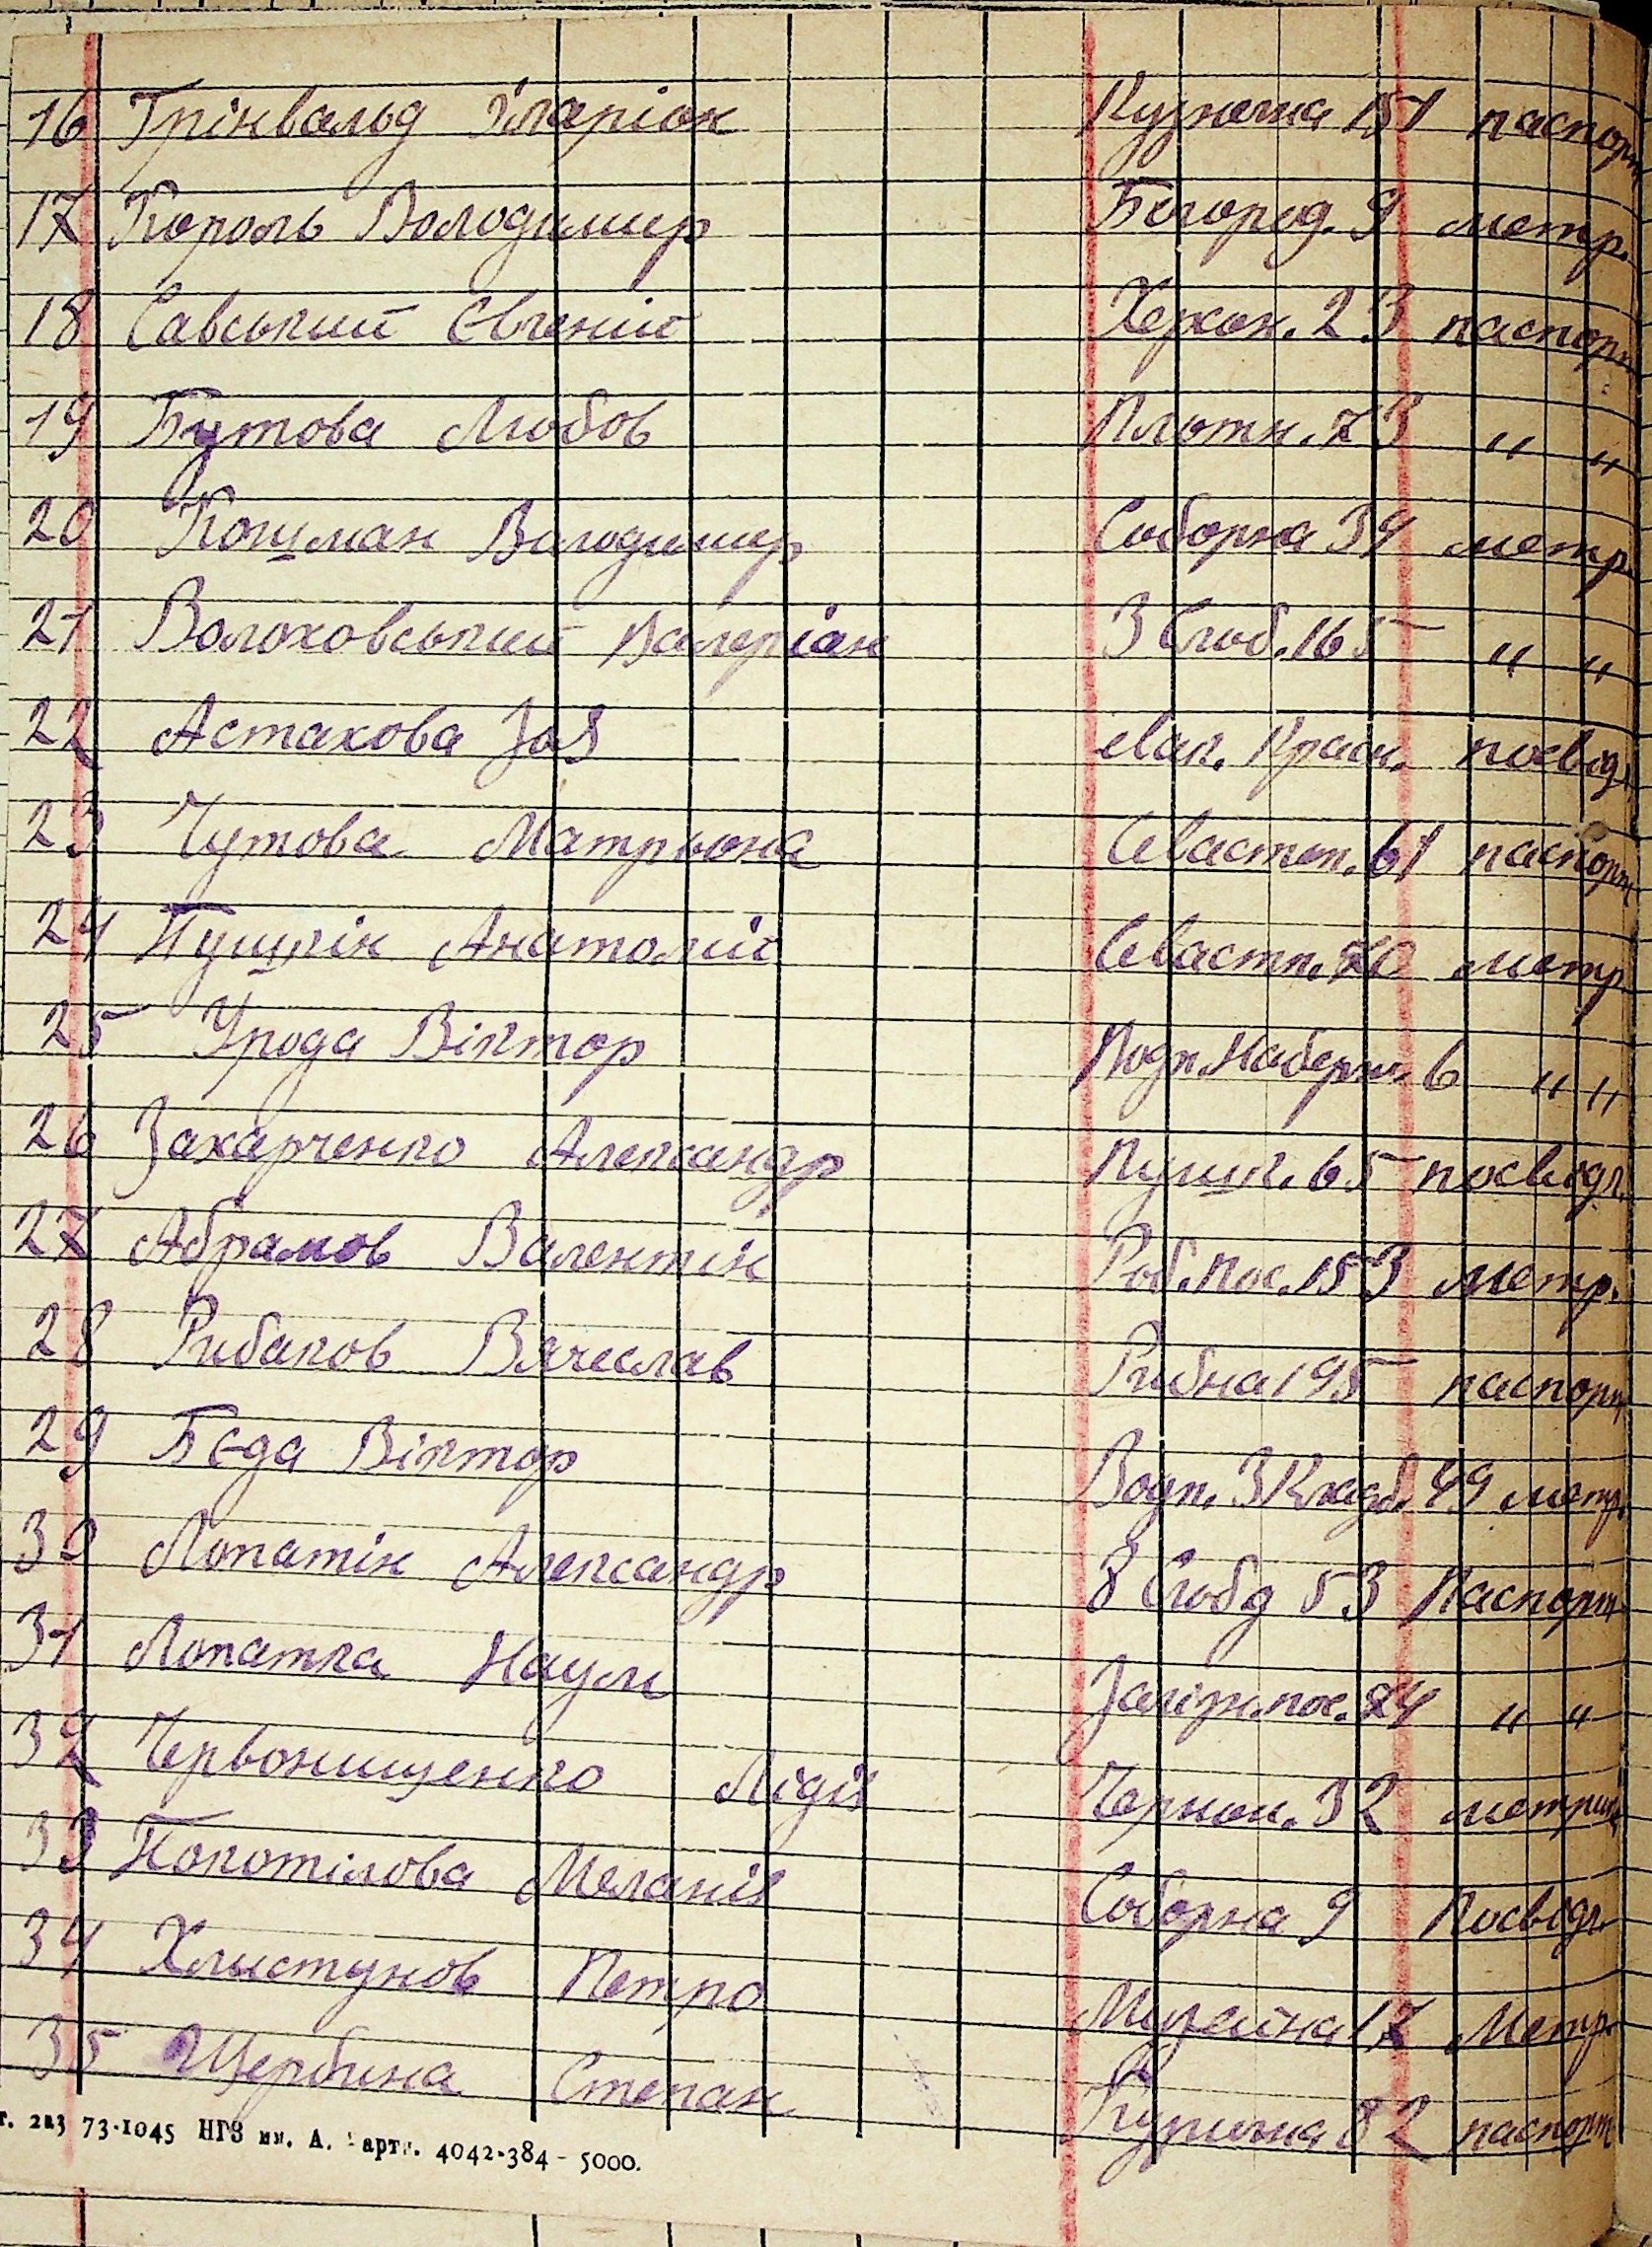 16 Грінвальд Іларіон Кузнечна 151 паспорт
17 Король Володимир Богород. 9 метр.
18 Савський Євгеній Херсон. 23 паспорт
19 Бутова Любов Плотн. 73 " "
20 Кошман Володимир Соборна 34 метр.
21 Волоховський Валеріан 3 Слоб. 165 " "
22 Астахова Зоя Мал. Красн. посвідч.
23 Чутова Матрьона Севастоп. 61 паспорт
24 Пушкін Анатолій Севастп. 70 метр
25 Урода Віктор Подп. Набереж. 6 " "
26 Захарченко Александр Пушк. 65 посвідч.
27 Абрамов Валентін Роб. пос. 153 метр.
28 Рибаков Вячеслав Рибна 195 паспорт
29 Беда Віктор Водп. 3 Кладб. 49 метр.
30 Лопатін Александр 8 Слобд 53 Паспорт
31 Лопатка Наум Залізн. пос. 24 " "
32 Червонищенко Лідія Черном. 32 метрика
33 Покотілова Меланія Соборна 9 Посвідч.
34 Хлыстунов Петро Музейна 17 Метр.
35 Щербина Степан Кузнечна 82 паспорт
г. заз 73-1045 НГЗ им. А. Марти. 4042-384 - 5000.